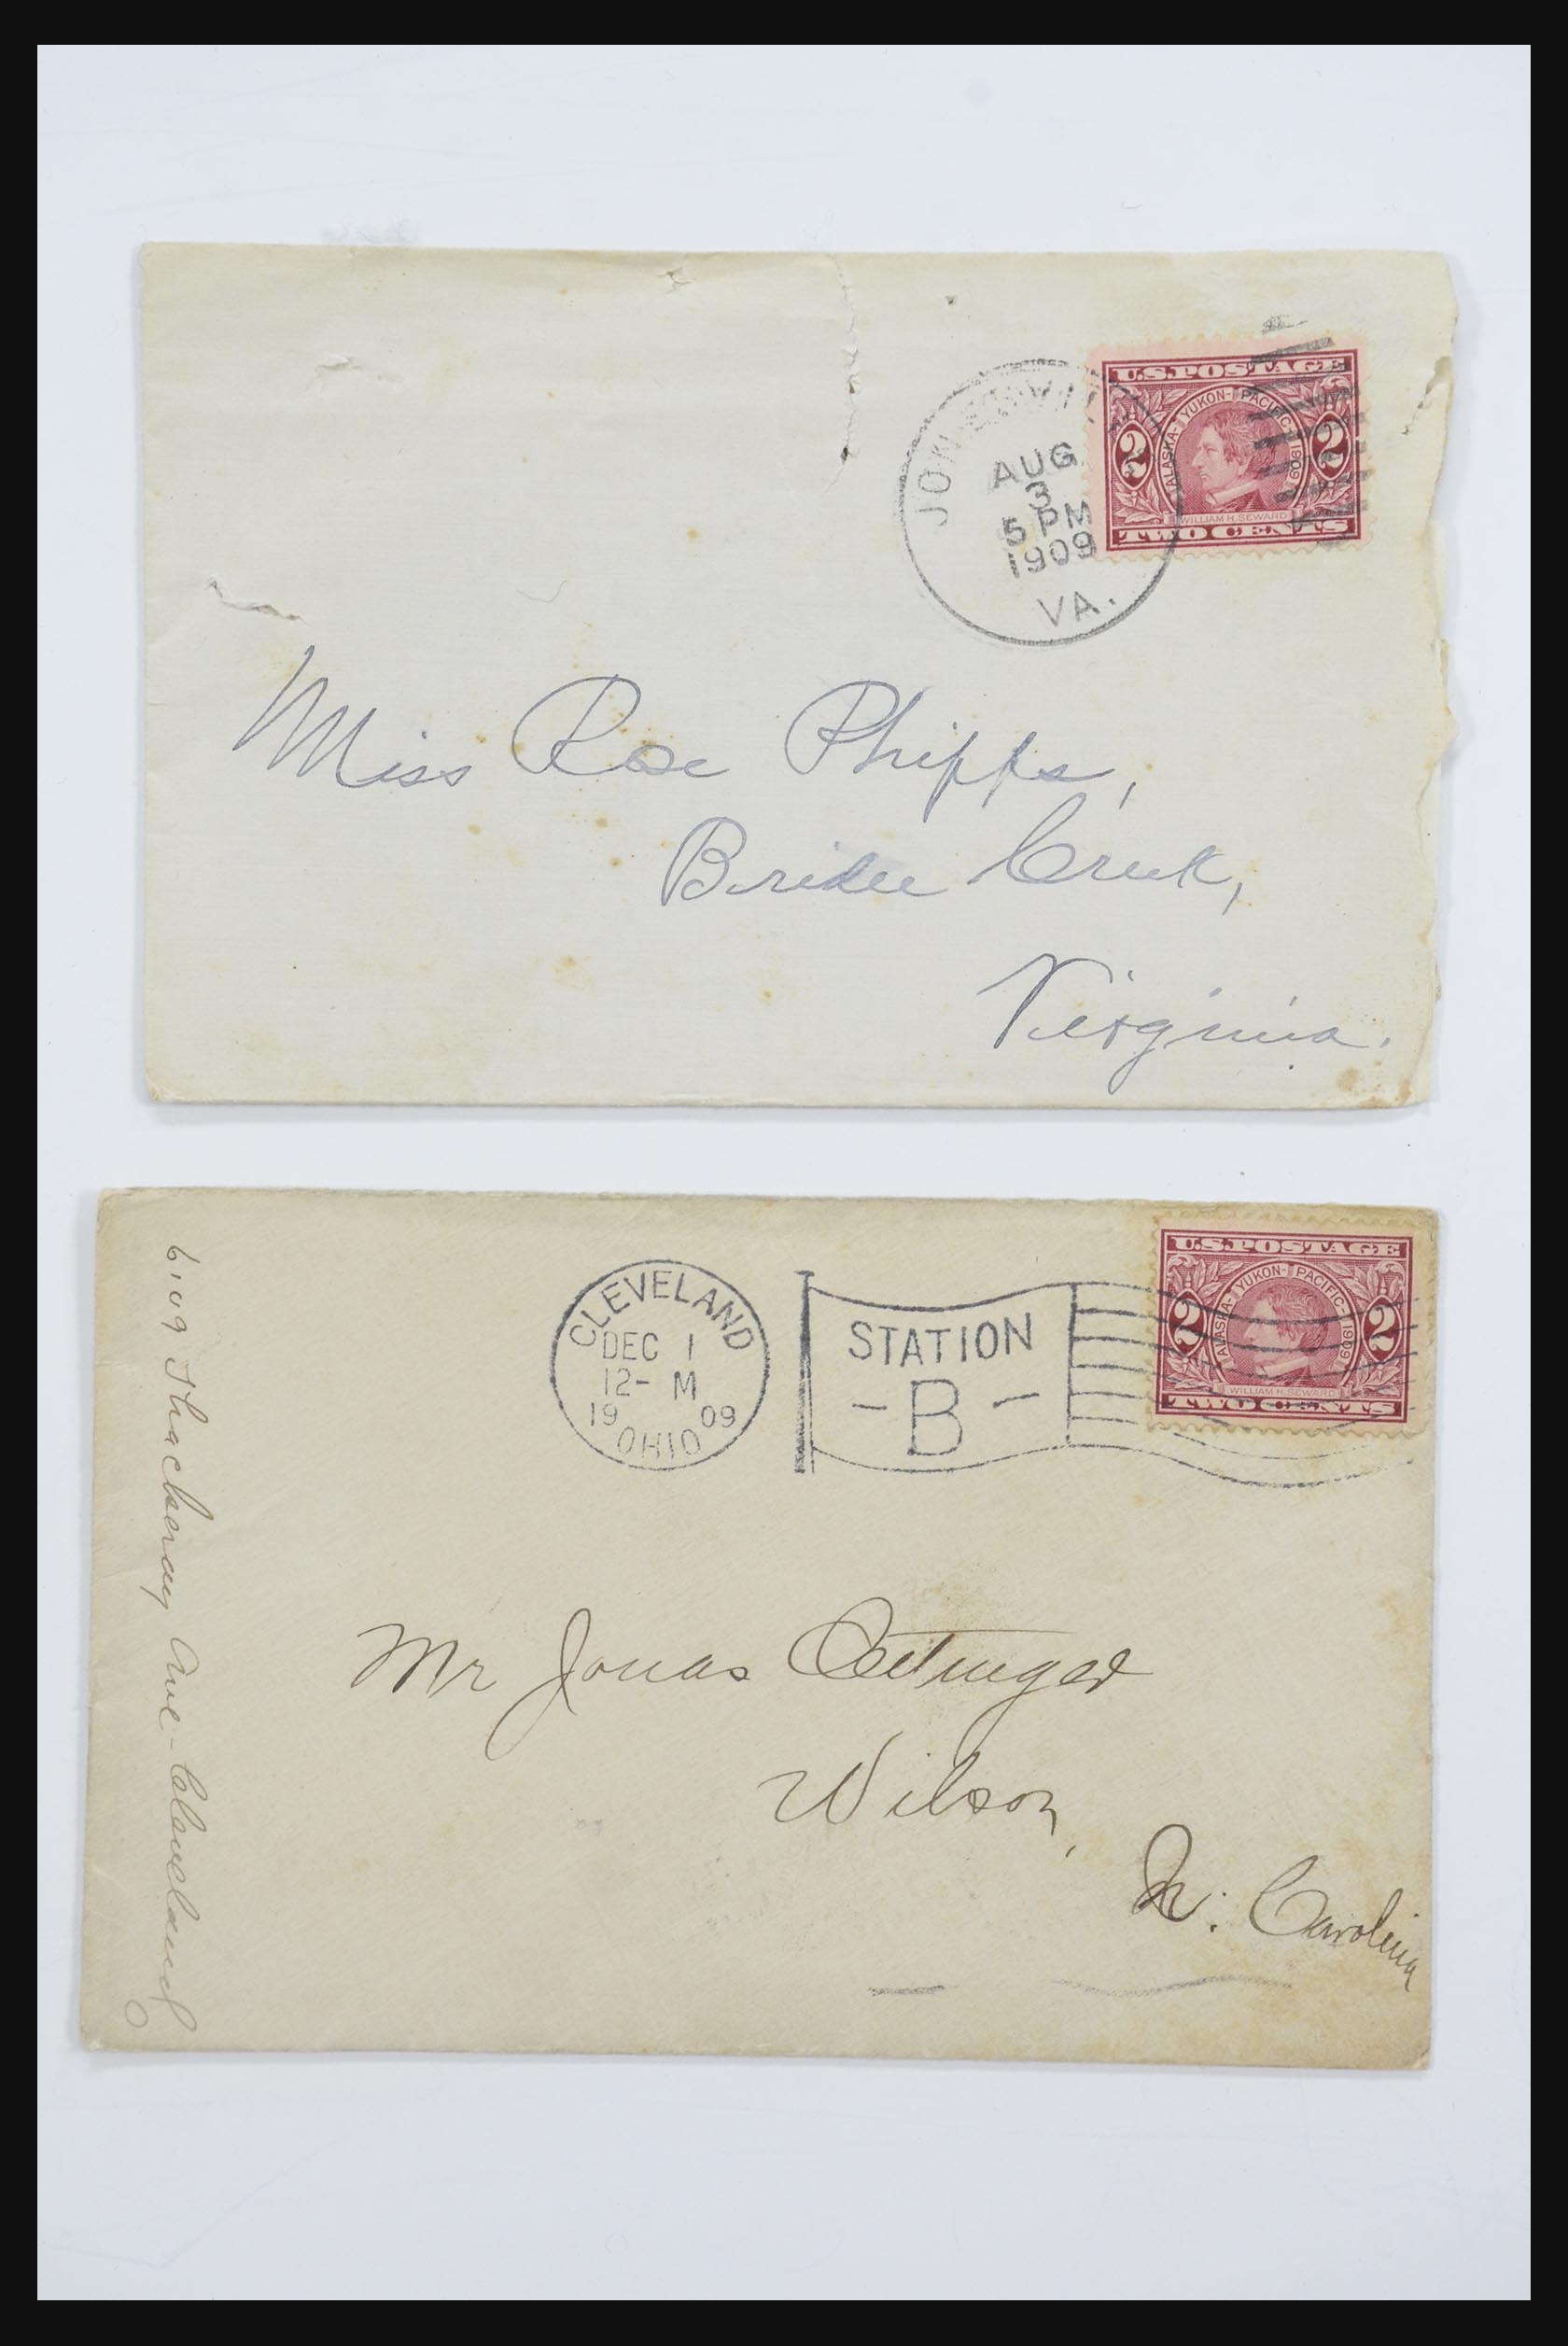 U.S. POSTAGE
ALASKA-YUKON-PACIFIC-1909
2 2
WILLIAM H. SEWARD
TWO CENTS
AUG
3
5 PM
1909
VA.
Miss Rose Phipps,
Creek,
Virginia.
U.S. POSTAGE
ALASKA-YUKON-PACIFIC-1909
2 2
WILLIAM H. SEWARD
TWO CENTS
CLEVELAND
DEC 1
12- M
19 09
OHIO
STATION
- B -
Thackeray Ave - Cleveland O
Mr Jonas Oettinger
Wilson,
N. Carolina